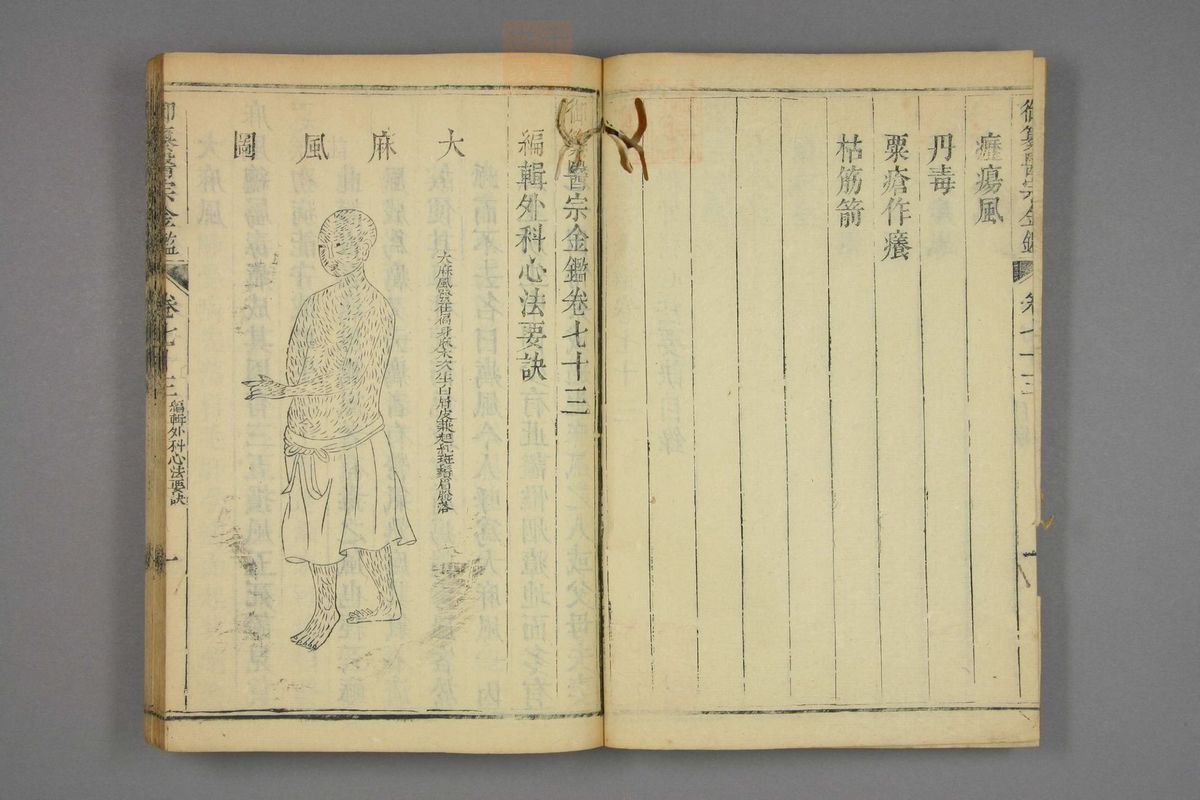 御纂醫宗金鑑 卷七十三
癧瘍風
丹毒
粟瘡作癢
枯筋箭
御纂醫宗金鑑卷七十三
編輯外科心法要訣
大麻風圖
大麻風發在徧身麻木次生白屑皮
起紅斑鬚眉脫落
御纂醫宗金鑑 卷七十三 編輯外科心法要訣 一